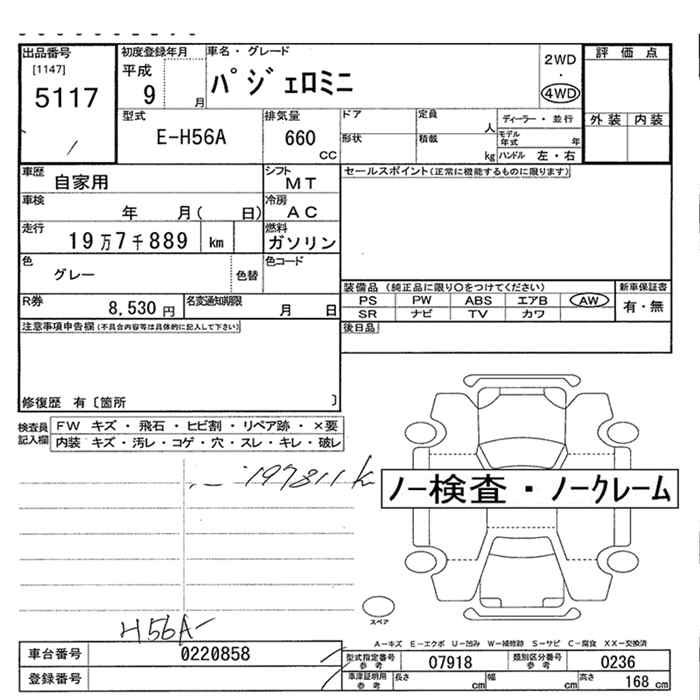 出品番号
[1147]
5117
初度登録年月
平成
9
月
車名・グレード
パジェロミニ
2WD
・
4WD
評価点
型式
E-H56A
排気量
660
CC
ドア
形状
定員
人
積載
kg
ディーラー・並行
モデル年式
年
ハンドル 左・右
外装 内装
車歴
自家用
シフト
MT
セールスポイント(正常に機能するものに限ります)
車検
年 月( 日)
冷房
AC
走行
19万7千889 km
燃料
ガソリン
色
グレー
色替
色コード
装備品 (純正品に限り○をつけてください)
新車保証書
PS PW ABS エアB AW
SR ナビ TV カワ
有・無
R券
8,530 円
名変通知期限
月 日
後日品
注意事項申告欄(不具合内容等は具体的に記入して下さい)
修復歴 有〔箇所 〕
検査員記入欄
FW キズ・飛石・ヒビ割・リペア跡・×要
内装 キズ・汚レ・コゲ・穴・スレ・キレ・破レ
197811k
ノー検査・ノークレーム
スペア
H56A-
A-キズ E-エクボ U-凹み W-補修跡 S-サビ C-腐食 XX-交換済
車台番号
0220858
型式指定番号
参考
07918
類別区分番号
参考
0236
登録番号
車庫証明用
参考
長さ
cm
幅
cm
高さ
168 cm